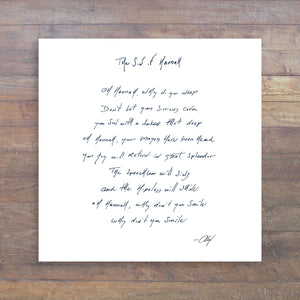 The S.d. of Hannah
Oh Hannah, why do you weep
Don't let your sorrows
you with a that deep
Oh Hannah, your prayers have been heard
your joy will return in great splendor
The speechless will sing
and the hopeless will shine
Oh Hannah, why don't you smile
why don't you smile